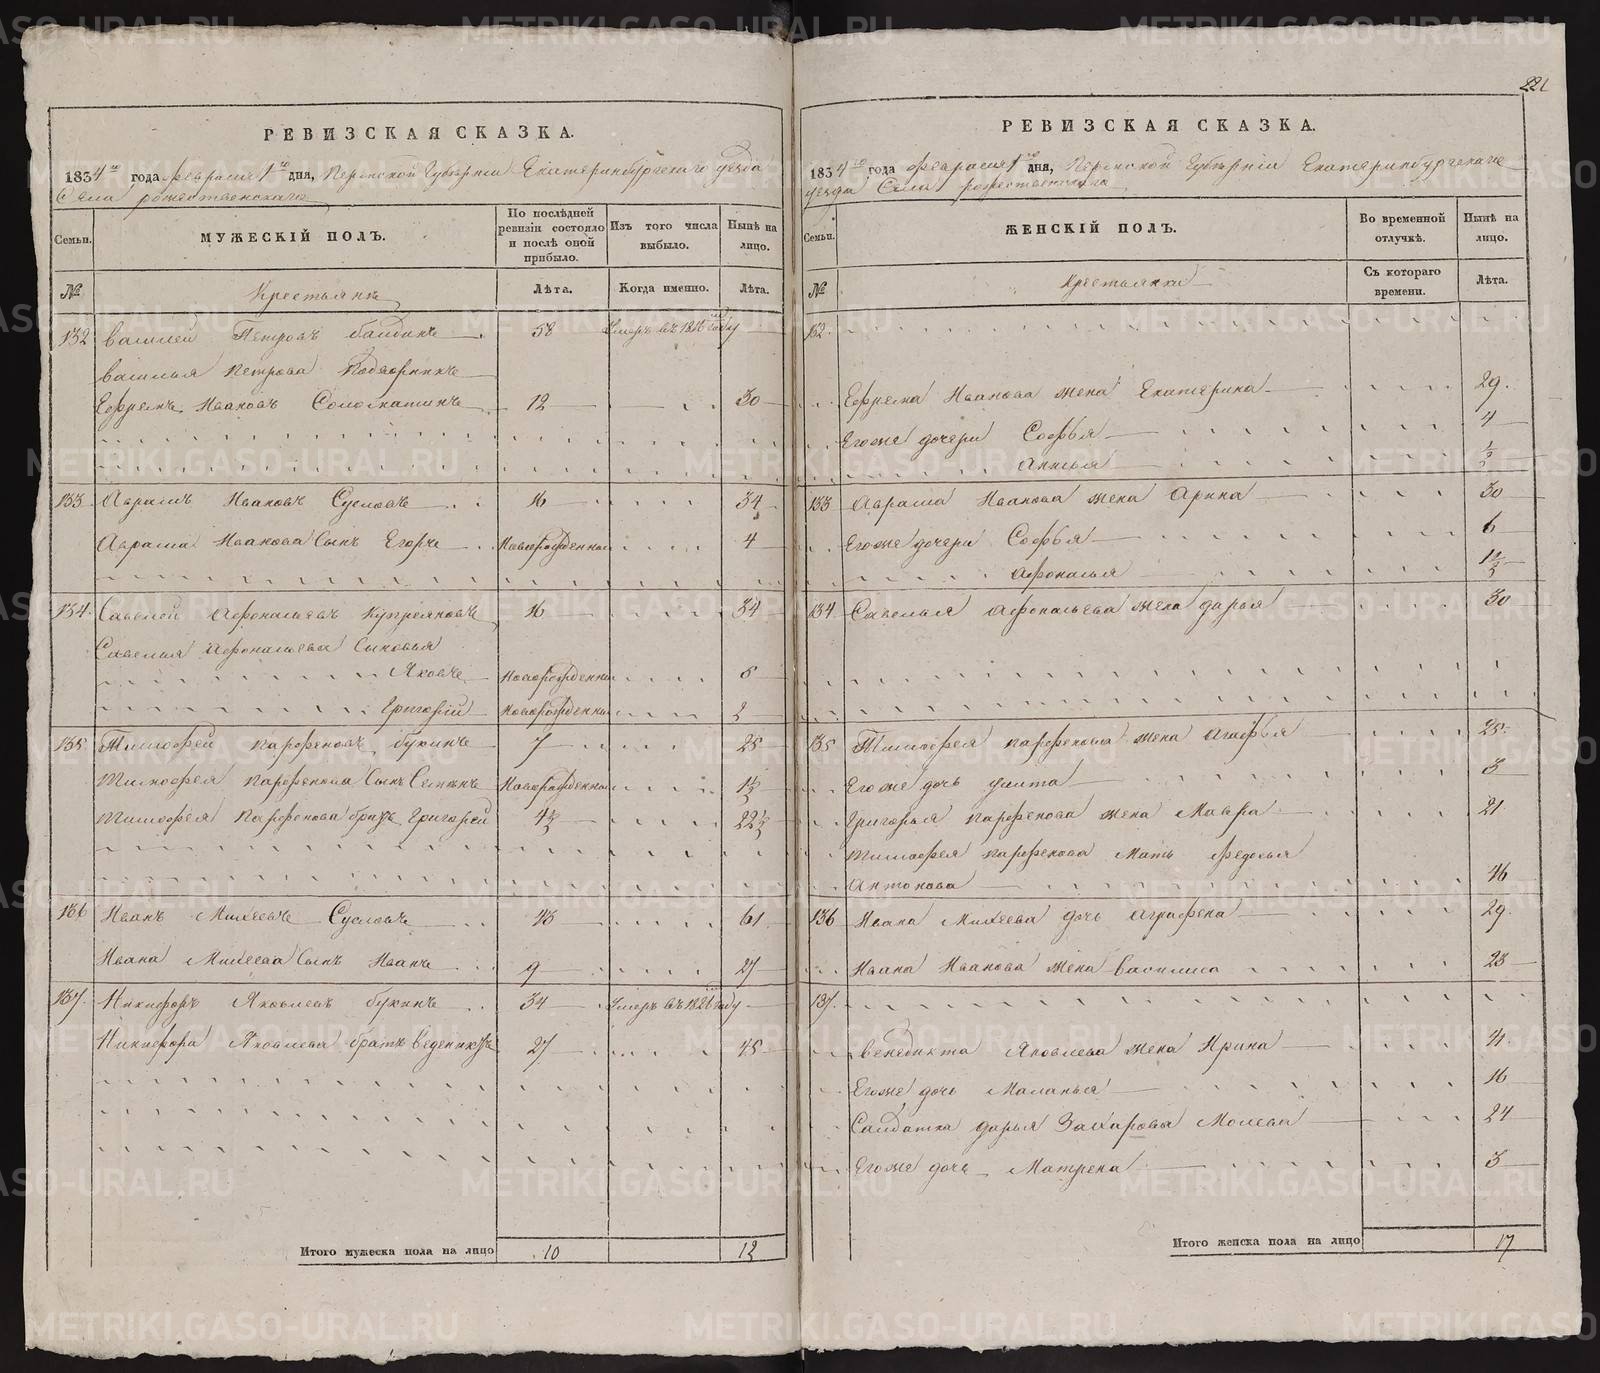 221
РЕВИЗСКАЯ СКАЗКА.
1834го года февраля 1го дня, Пермской Губернии Екатеринбургского уезда
Села рожественскаго
Семьи.
МУЖЕСКІЙ ПОЛЪ.
По послѣдней ревизіи состояло и послѣ оной прибыло.
Изъ того числа выбыло.
Нынѣ на лицо.
№
Крестьяне
Лѣта.
Когда именно.
Лѣта.
132 Василей Петровъ балдинъ 58 Умеръ въ 1816 году
Василья Петрова Подворникъ
Ефремъ Ивановъ 12 30
133 Аврамъ Ивановъ Сусловъ 16 34
Аврама Иванова Сынъ Егоръ Новорожденный 4
134 Савелей Афонасьевъ Купреяновъ 16 34
Савелья Афонасьева Сыновья
Яковъ Новорожденный 6
Григорій Новорожденный 2
135 Тимофей парфеновъ букинъ 7 25
Тимофея парфенова Сынъ Семенъ Новорожденный 1½
Тимофея парфенова братъ Григорей 4½ 22½
136 Иванъ Михеевъ Сусловъ 43 61
Ивана Михеева Сынъ Иванъ 9 27
137 Никифоръ Яковлевъ букинъ 34 Умеръ въ 1826 году
Никифора Яковлева братъ Веденикъ 27 45
Итого мужеска пола на лицо 10 12
РЕВИЗСКАЯ СКАЗКА.
1834го года февраля 1го дня, Пермской Губерніи Екатеринбургскаго
уезда Села рожественскаго
Семьи.
ЖЕНСКІЙ ПОЛЪ.
Во временной отлучкѣ.
Нынѣ на лицо.
№
Крестьянки
Съ котораго времени.
Лѣта.
132
Ефрема Иванова жена Екатерина 29
Егоже дочери Софья 4
Анисья ½
133 Аврама Иванова жена Арина 30
Егоже дочери Софья 6
Афонасья 1½
134 Савелья Афонасьева жена дарья 30
135 Тимофея парфенова жена Агафья 25
Егоже дочь улита 3
Григорья парфенова жена Мавра 21
Тимофея парфенова Мать Федосья
Антонова 46
136 Ивана Михеева дочь Аграфена 29
Ивана Иванова жена Василиса 23
137
Венедикта Яковлева жена Ирина 41
Егоже дочь Маланья 16
Салдатка дарья Захарова Молева 24
Егоже дочь Матрена 3
Итого женска пола на лицо 17
METRIKI.GASO-URAL.RU